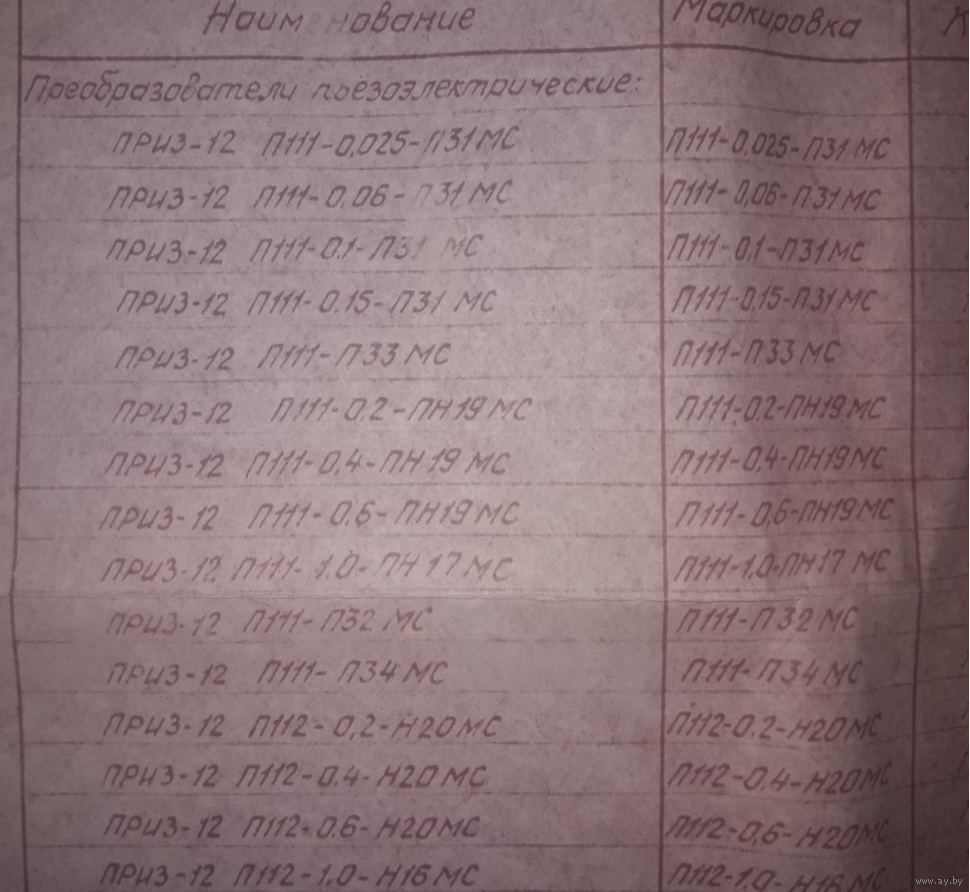 Наименование Маркировка К
Преобразователи пьезоэлектрические:
ПРИЗ-12 П111-0,025-П31 МС П111-0,025-П31 МС
ПРИЗ-12 П111-0,06-П31 МС П111-0,06-П31 МС
ПРИЗ-12 П111-0.1-П31 МС П111-0,1-П31 МС
ПРИЗ-12 П111-0.15-П31 МС П111-0,15-П31 МС
ПРИЗ-12 П111-П33 МС П111-П33 МС
ПРИЗ-12 П111-0.2-ПН19 МС П111-0.2-ПН19 МС
ПРИЗ-12 П111-0.4-ПН19 МС П111-0,4-ПН19 МС
ПРИЗ-12 П111-0.6-ПН19 МС П111-0,6-ПН19 МС
ПРИЗ-12 П111-1.0-ПН17 МС П111-1.0-ПН17 МС
ПРИЗ-12 П111-П32 МС П111-П32 МС
ПРИЗ-12 П111-П34 МС П111-П34 МС
ПРИЗ-12 П112-0,2-Н20 МС П112-0.2-Н20 МС
ПРИЗ-12 П112-0.4-Н20 МС П112-0.4-Н20 МС
ПРИЗ-12 П112-0.6-Н20 МС П112-0,6-Н20 МС
ПРИЗ-12 П112-1.0-Н16 МС П112-1.0-Н16 МС
www.ay.by